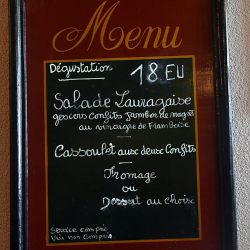 Menu
Dégustation
18 EU
Salade Lauragaise
gesiers confits Jambon de magret
au vinaigre de Framboise
Cassoulet aux deux Confits
Fromage
ou
Dessert au choix
Service compris
Vin non Compris